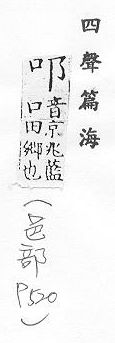 四聲篇海
𨙫
音京兆藍
口田鄉也
(邑部
P520)